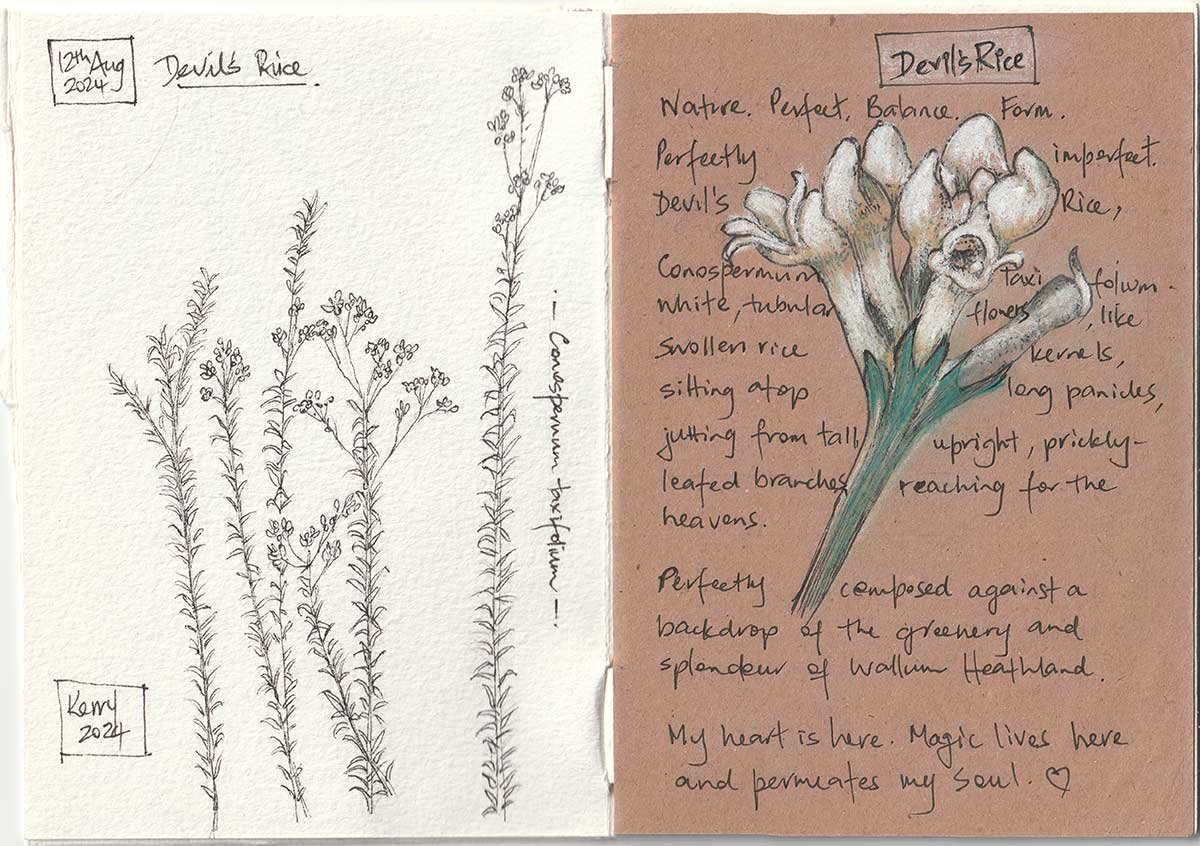 12th Aug
2024
Devil's Rice.
- Conospermum taxifolium -.
Kerry
2024
Devil's Rice
Nature. Perfect. Balance. Form.
Perfectly imperfect.
Devil's Rice,
Conospermum taxifolium.
white, tubular flowers, like
swollen rice kernels,
sitting atop long panicles,
jutting from tall, upright, prickly-
leafed branches reaching for the
heavens.
Perfectly composed against a
backdrop of the greenery and
splendour of Wallum Heathland.
My heart is here. Magic lives here
and permeates my soul. ♡